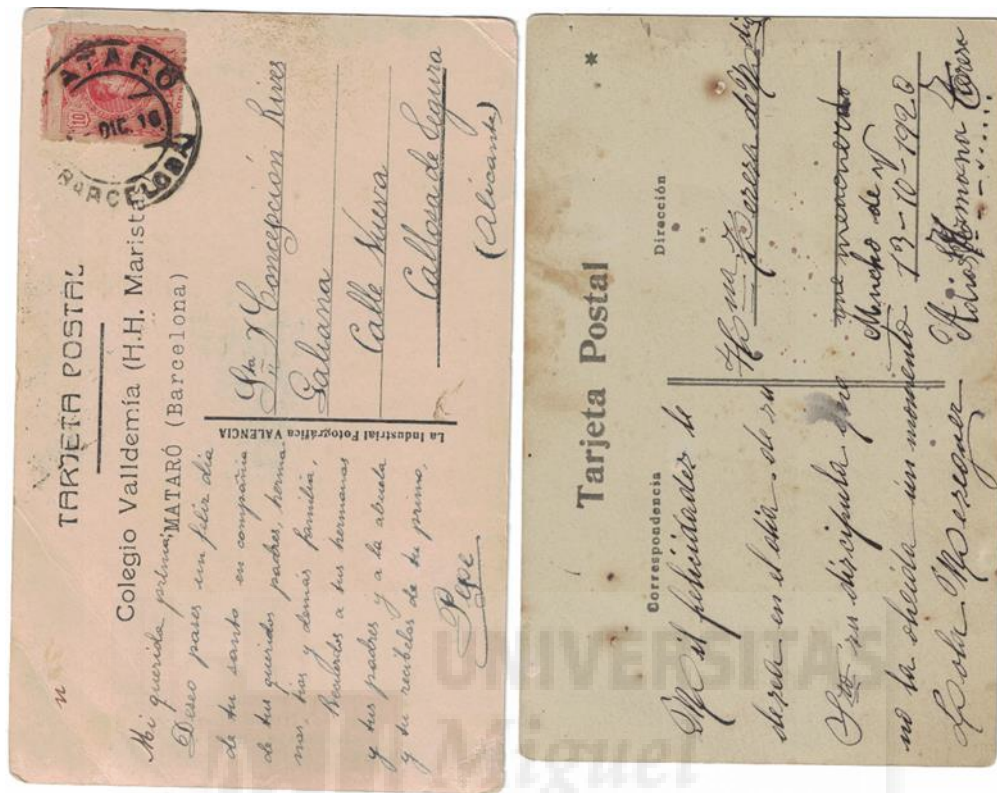 TARJETA POSTAL
Colegio Valldemía (H.H. Maristas)
MATARÓ (Barcelona)
10
MATARÓ
DIC. 16
BARCELONA
Mi querida prima:
Deseo pases un feliz día
de tu santo en compañía
de tus queridos padres, herma-
nos, tíos y demás familia,
Recuerdos a tus hermanas
y tus padres y a la abuela
y tu recibelos de tu primo,
Pepe
La Industrial Fotográfica VALENCIA
Sta Dª Concepción Rives
Galiana
Calle Nueva
Callosa de Segura
(Alicante)
Tarjeta Postal
*
Correspondencia
Mil felicidades le
desea en el día de su
Sto su discipula que
no la olvida un momento
Lola Meseguer
Dirección
Hna Teresa de
Mucho de N
13-10-1920
Adios Hermana Teresa
UNIVERSITAS
Miguel